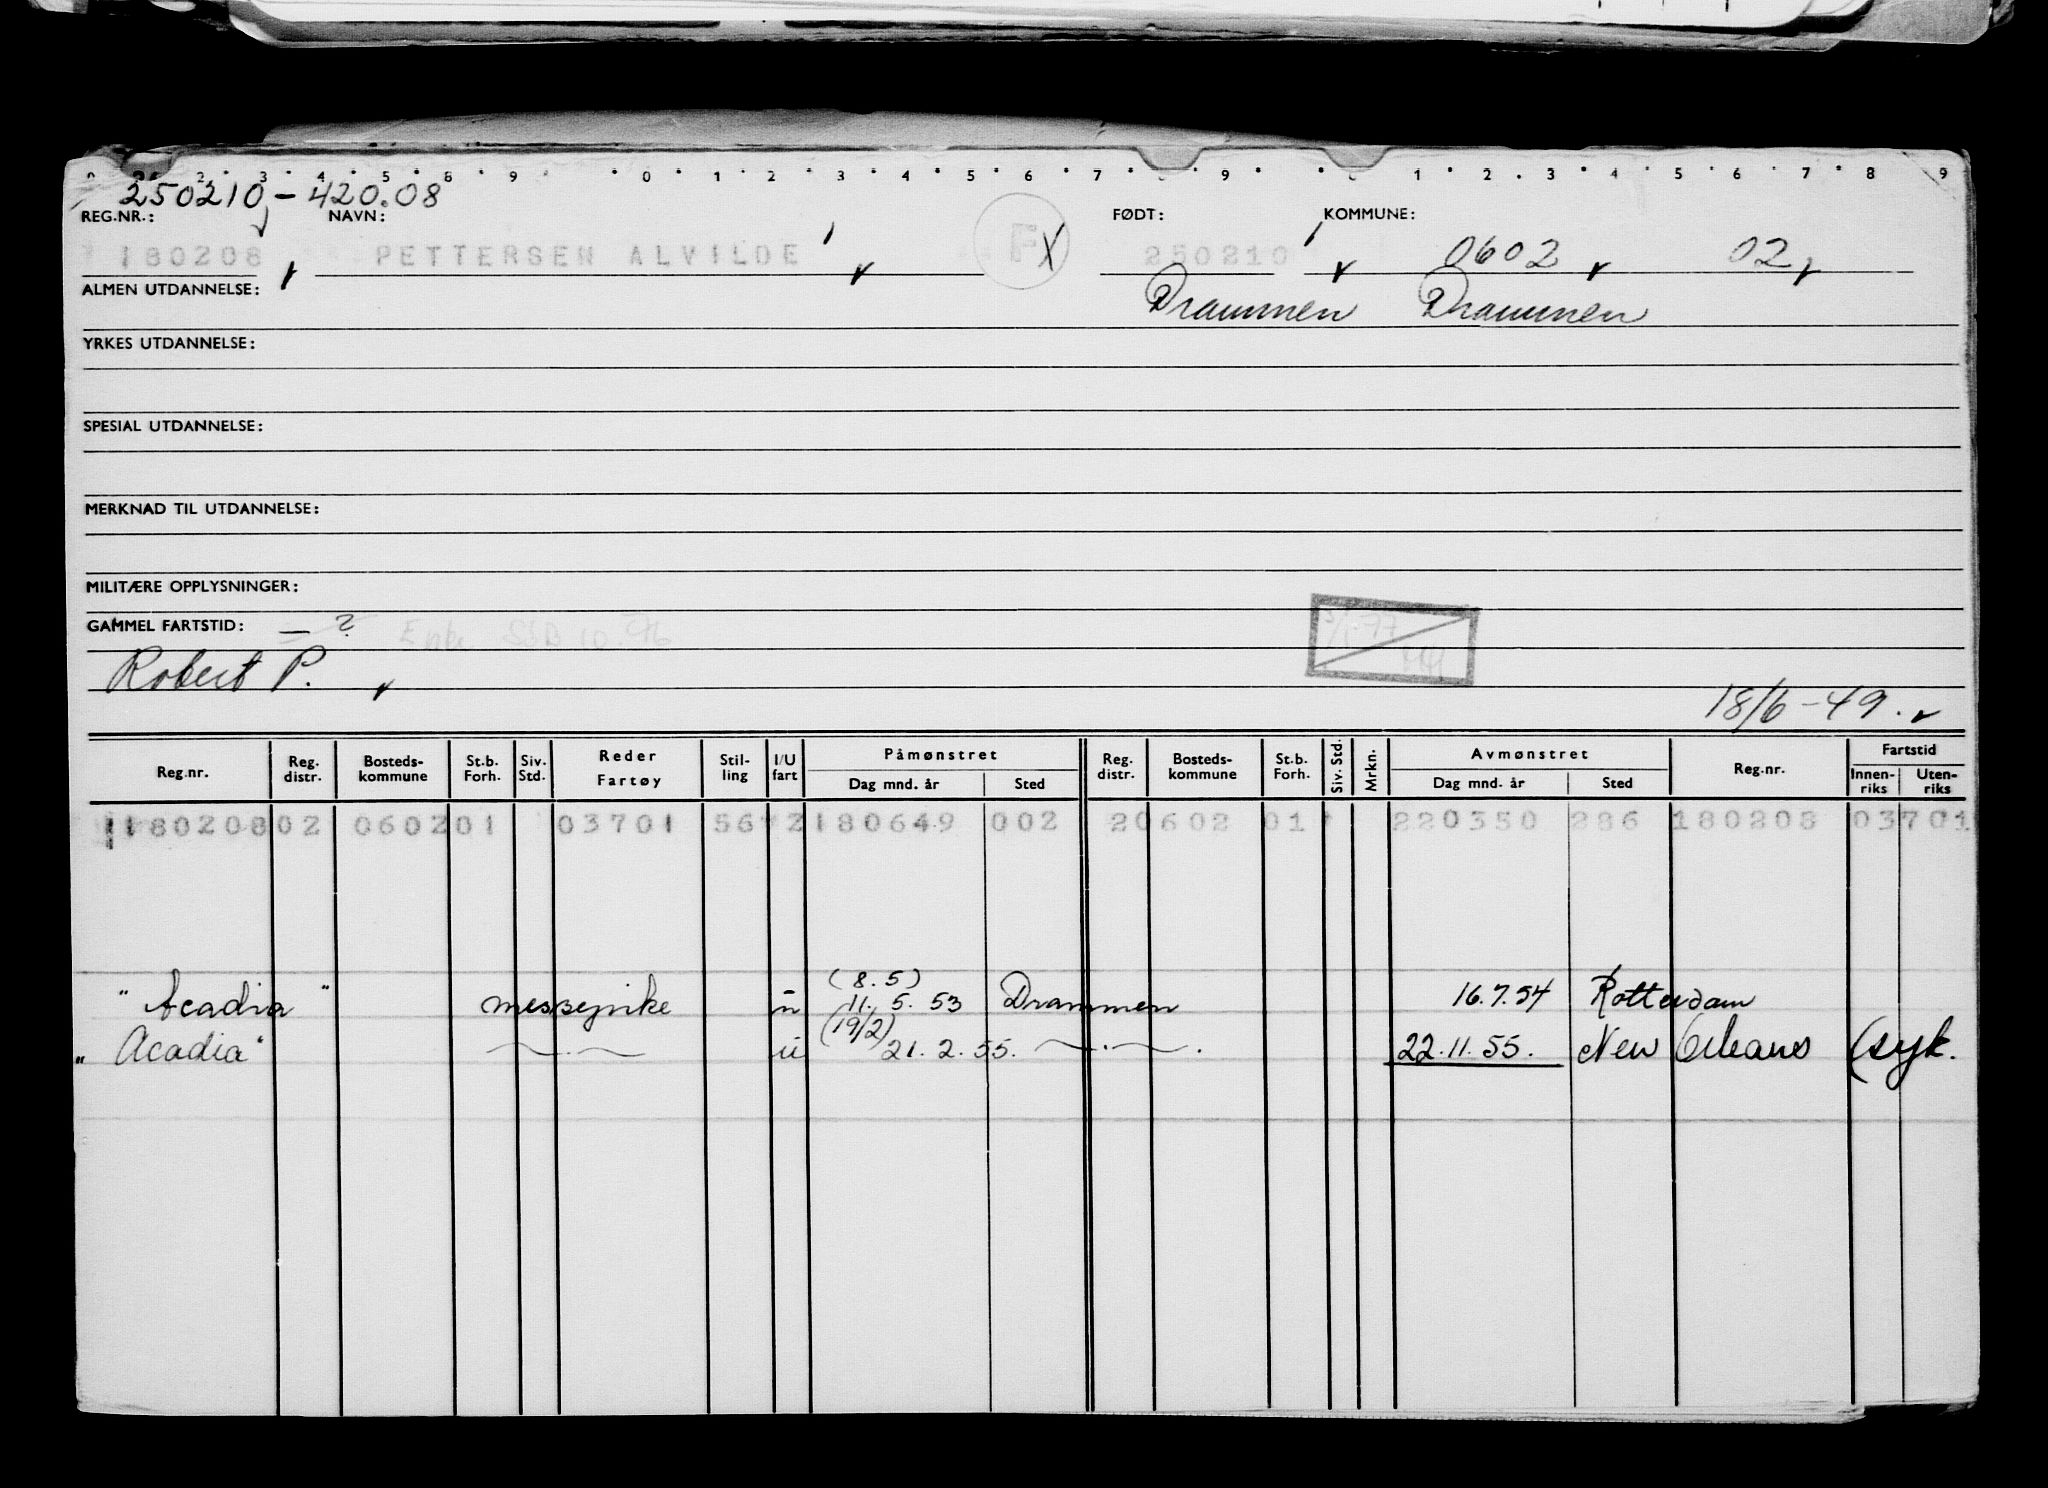 250210-420.08
REG.NR.: NAVN: FØDT: KOMMUNE:
180208 PETTERSEN ALVILDE F X 250210 0602 02
ALMEN UTDANNELSE: Drammen Drammen
YRKES UTDANNELSE:
SPESIAL UTDANNELSE:
MERKNAD TIL UTDANNELSE:
MILITÆRE OPPLYSNINGER:
GAMMEL FARTSTID: — ?
Robert P.
18/6-49.
Reg.nr. Reg. distr. Bosteds-kommune St.b. Forh. Siv. Std. Reder Fartøy Stil-ling I/U fart Påmønstret Dag mnd. år Sted Reg. distr. Bosteds-kommune St.b. Forh. Siv. Std. Mrkn. Avmønstret Dag mnd. år Sted Reg.nr. Fartstid Innen-riks Uten-riks
180208 02 0602 01 03701 56 2 180649 002 2 0602 01 220350 286 180208 03701
(8.5)
"Acadia" messepike u 11. 5. 53 Drammen 16.7.54 Rotterdam
(19/2)
"Acadia" u 21. 2. 55. 22.11.55. New Orleans (syk.